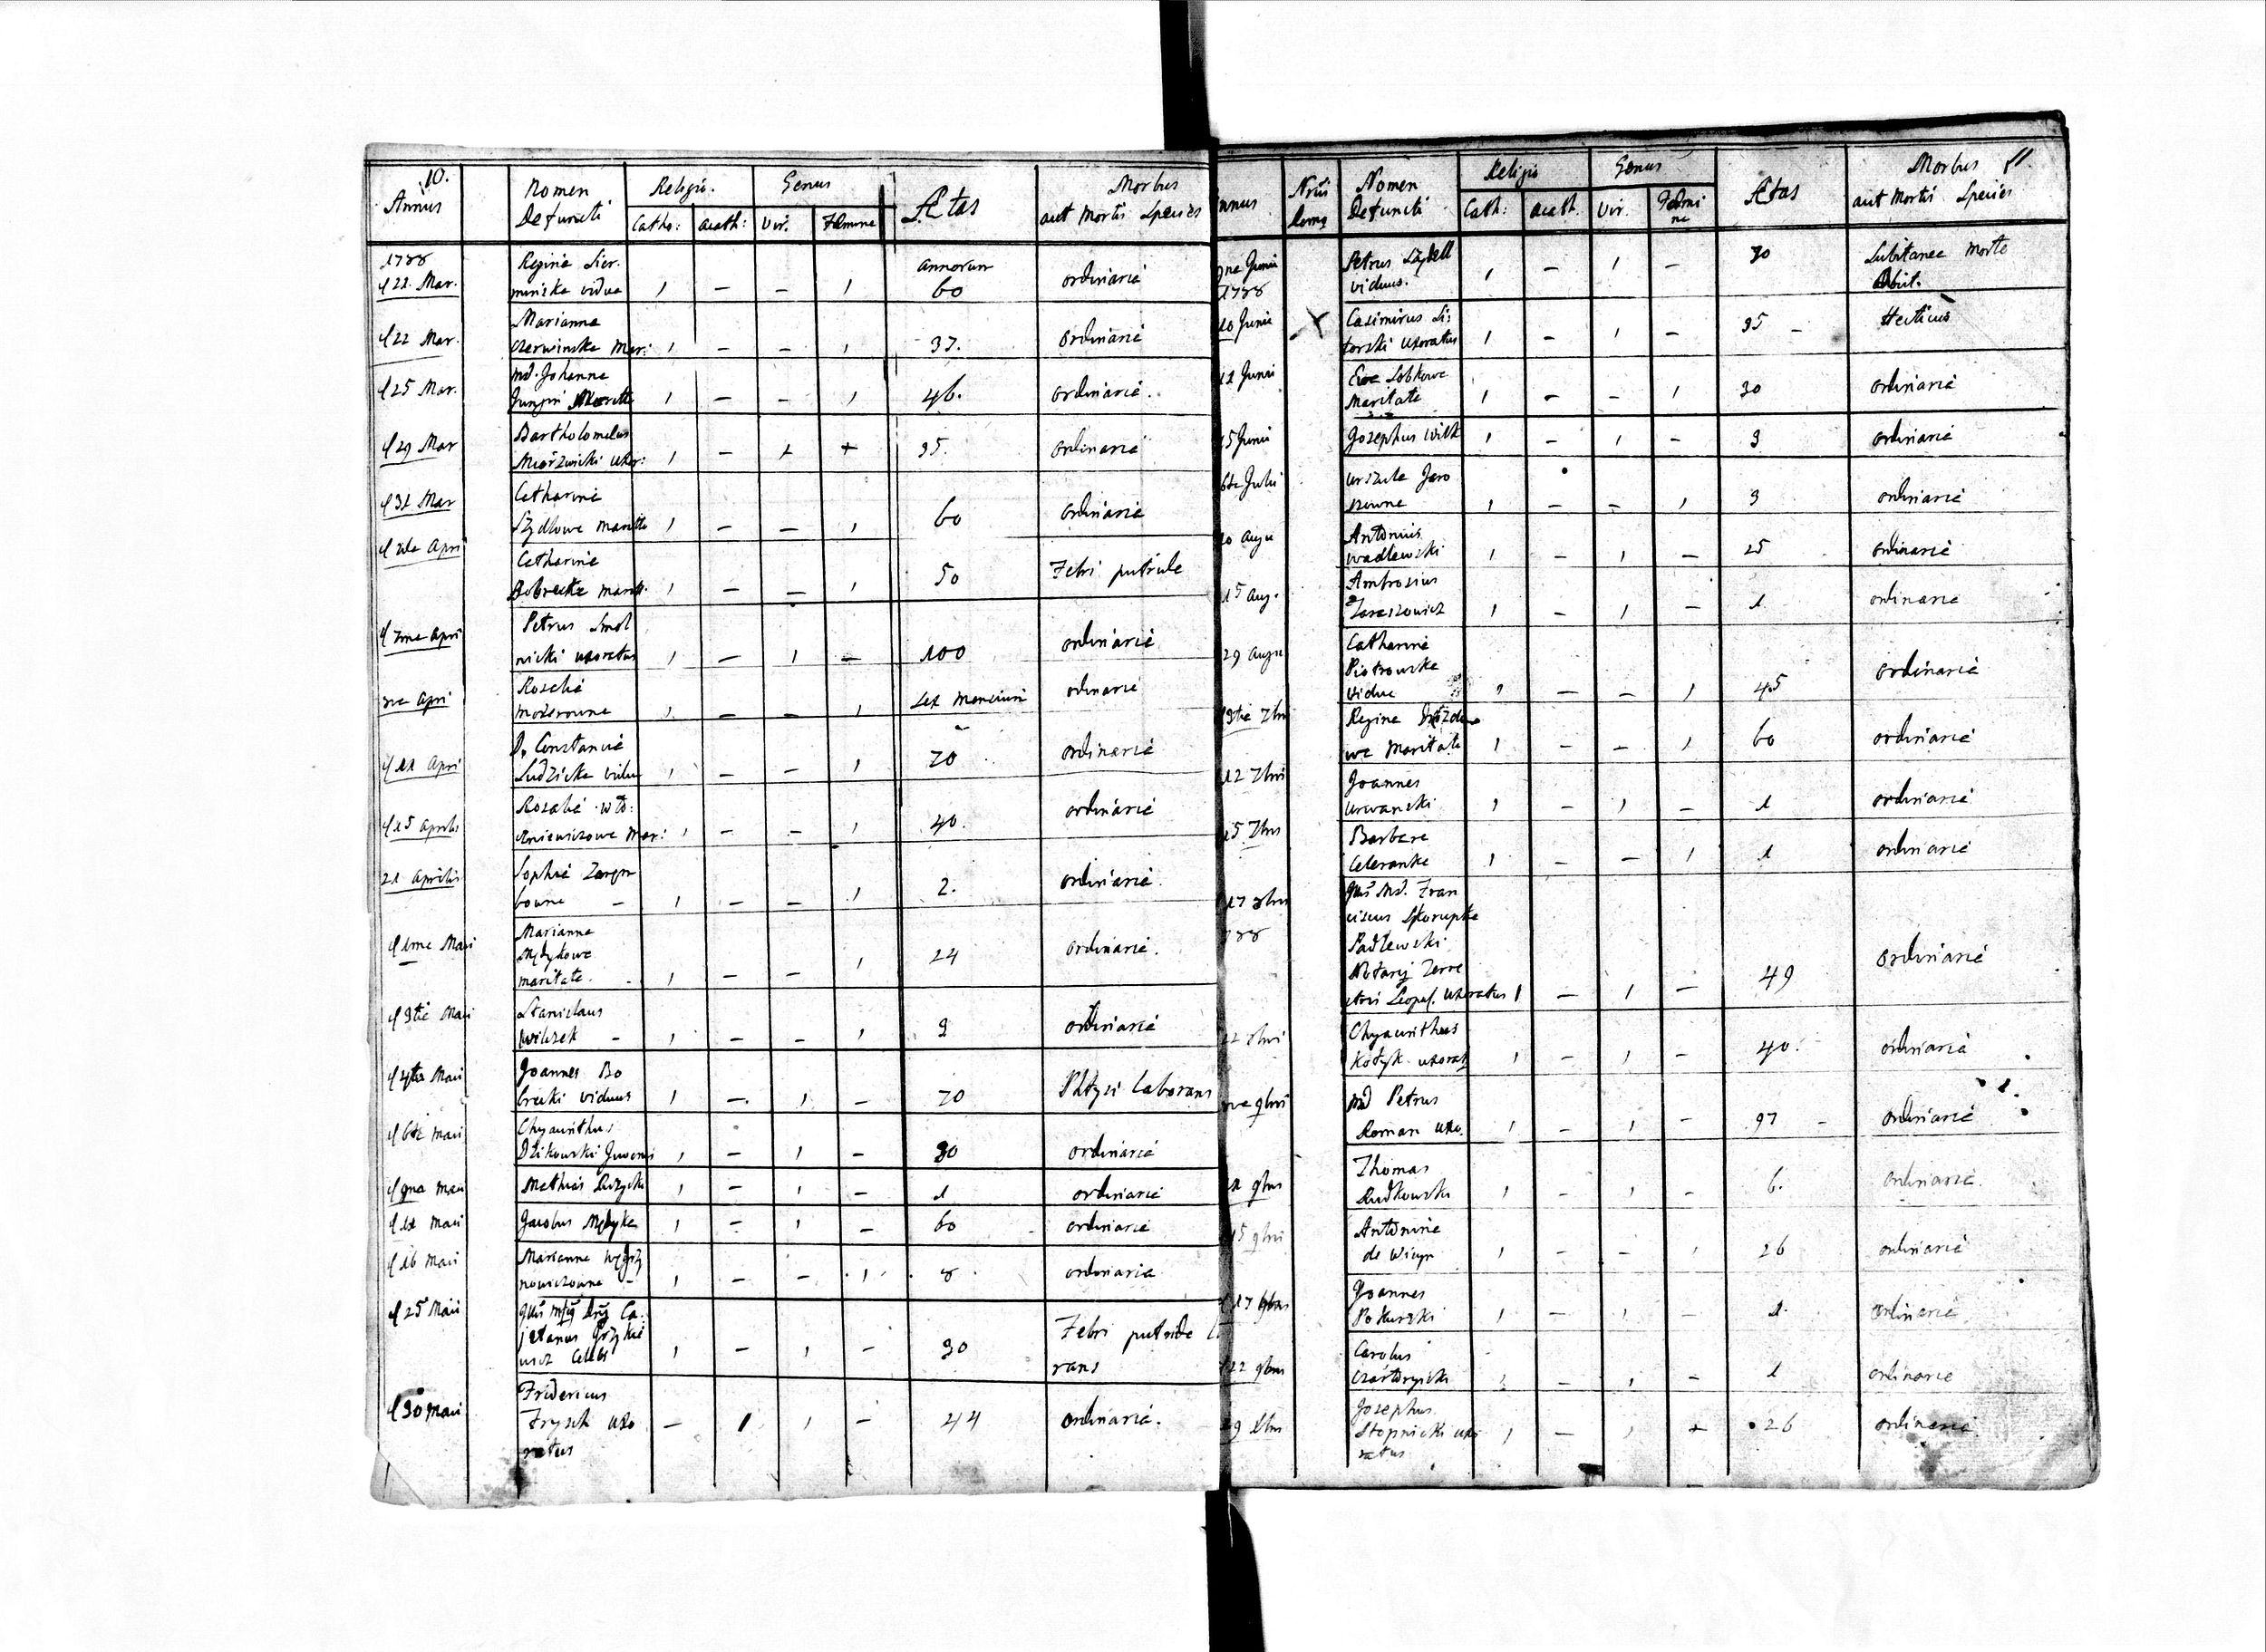 10.
Annus
Nomen Defuncti
Religio.
Catho: acath:
Genus
Vir. Fæmine
Ætas
Morbus
aut Mortis Species
1788
d 22. Mar.
Regina Sier.
minska vidua
annorum
60
ordinaria
d 22 Mar.
Marianna
Czerwinska Mar:
37.
ordinaria
d 25 Mar.
Md. Johanna
46.
ordinaria.
d 29 Mar
Bartholomeus
Mierzwicki Uxor:
35.
ordinaria
d 31 Mar
Catharina
Szydłowa Marita
60
ordinaria
Apri
Catharina
Bobrecka marit.
50
Febri putrida
d 7ma Apri
Petrus Smol
nicki uxoratus
100
ordinaria
Apri
Rosalia
Mozerowna
sex Mensium
odinaria
d 11 Apri
D. Constancia
Ludzicka vidua
70
ordinaria
d 15 Aprilis
Rozalia Wło:
Mar:
40.
ordinaria
21 Aprilis
Sophia
bowna
2.
ordinaria.
d 1ma Maii
Marianna
Mędykowa
maritata.
24
ordinaria.
d 3tia Maii
Stanislaus
Wilczek
3
ordinaria
d 4ta Maii
Joannes Bo
brecki viduus
70
Phtysi laborans
d 6ta Maii
Chyacinthus
Dzikowski Juvenis
30
ordinaria
d 9na Maii
Mathias
1
ordinaria
d 12 Maii
Jacobus Mędyka
60
ordinaria
d 16 Maii
Marianna Węgrzy
nowiczowna
8
ordinaria
d 25 Maii
Ca
jetanus Grzykie
wicz Celebs
30
Febri putrida
rans
d 30 Maii
Fridericus
Frysch uxo
ratus
44
ordinaria.
11.
nnus
Nrus
Domus
Nomen
Defuncti
Religio
Cath: acath.
Genus
Vir. Fæmi
na
Ætas
Morbus
aut Mortis Species
9na Junii
1788
Petrus Szydeł
viduus.
70
Subitanea Morte
Obiit.
10 Junii
Casimirus Si:
korski uxoratus
35
Hecticus
12 Junii
Eva Sobkowa
Maritata
30
ordinaria
15 Junii
Josephus Wilk
3
ordinaria
6ta Julii
Urszula Jaro
szowna
3
ordinaria
10 Augu
Antonius
Wadlewski
25
ordinaria
15 Aug.
Ambrosius
Taraszowicz
1
ordinaria
29 Augu
Catharina
Piotrowska
vidua
45
ordinaria
3tia 7bri
Regina
wa Maritata
60
ordinaria
12 7bris
Joannes
Urwanski
1
ordinaria
15 7bris
Barbara
Celeranka
1
ordinaria
17 8bris
788
Md. Fran
ciscus Skorupka
Padlewski
Notarij Terre
stris Leopol. Uxoratus
49
ordinaria
22 8bris
Chyacinthus
Kotyk uxorat
40.
ordinaria
9bris
Md Petrus
Roman uxo.
97
ordinaria
9bris
Thomas
Rudkowski
6.
ordinaria.
15 9bris
Antonina
de Wicyn
26
ordinaria
17 9bris
Joannes
Pokurski
1.
ordinaria
22 9bris
Carolus
Czartoryski
1
ordinaria
9 Xbris
Josephus
Stopnicki uxo
ratus
26
ordinaria